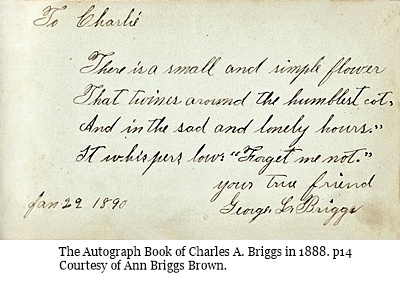 To Charlie
There is a small and simple flower
That twines around the humblest cot,
And in the sad and lonely hours."
It whispers low: "Forget me not."
your true friend
Jan 29 1890
George L. Briggs
The Autograph Book of Charles A. Briggs in 1888. p14
Courtesy of Ann Briggs Brown.